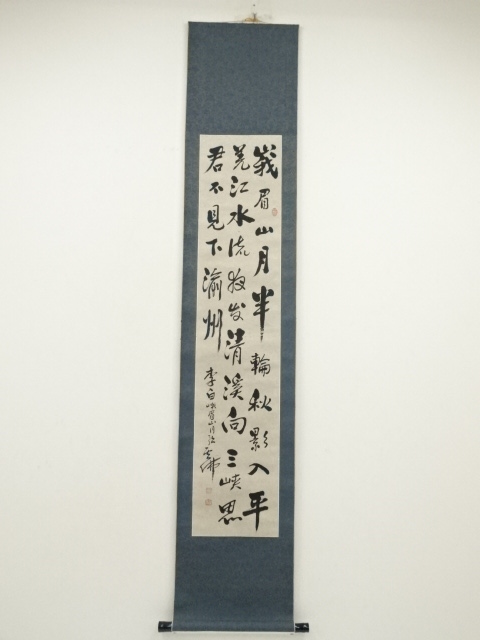 峩眉山月半輪秋影入平
羌江水流夜发清溪向三峡思
君不見下渝州
李白峨眉山月歌